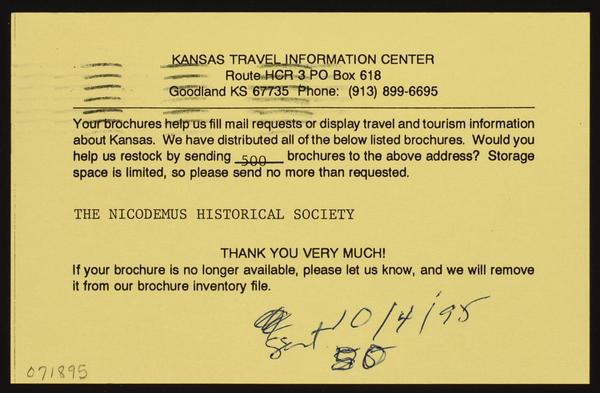 KANSAS TRAVEL INFORMATION CENTER
Route HCR 3 PO Box 618
Goodland KS 67735 Phone: (913) 899-6695
Your brochures help us fill mail requests or display travel and tourism information
about Kansas. We have distributed all of the below listed brochures. Would you
help us restock by sending 500 brochures to the above address? Storage
space is limited, so please send no more than requested.
THE NICODEMUS HISTORICAL SOCIETY
THANK YOU VERY MUCH!
If your brochure is no longer available, please let us know, and we will remove
it from our brochure inventory file.
sent 10/4/95
50
071895